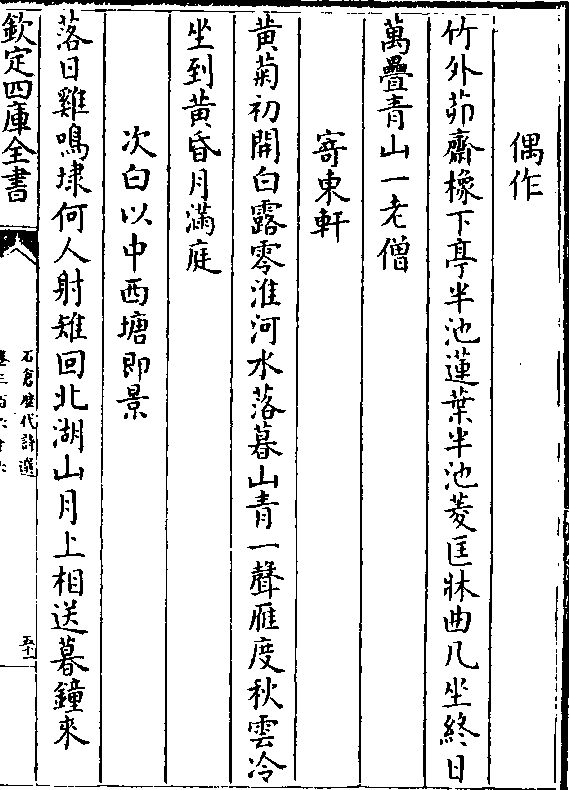 偶作
竹外茆齋橡下亭半池蓮葉半池菱匡牀曲几坐終日
萬疊青山一老僧
寄東軒
黄菊初開白露零淮河水落暮山青一聲雁度秋雲冷
坐到黄昏月滿庭
次白以中西塘即景
落日雞鳴埭何人射雉回北湖山月上相送暮鐘來
欽定四庫全書
石倉歴代詩選